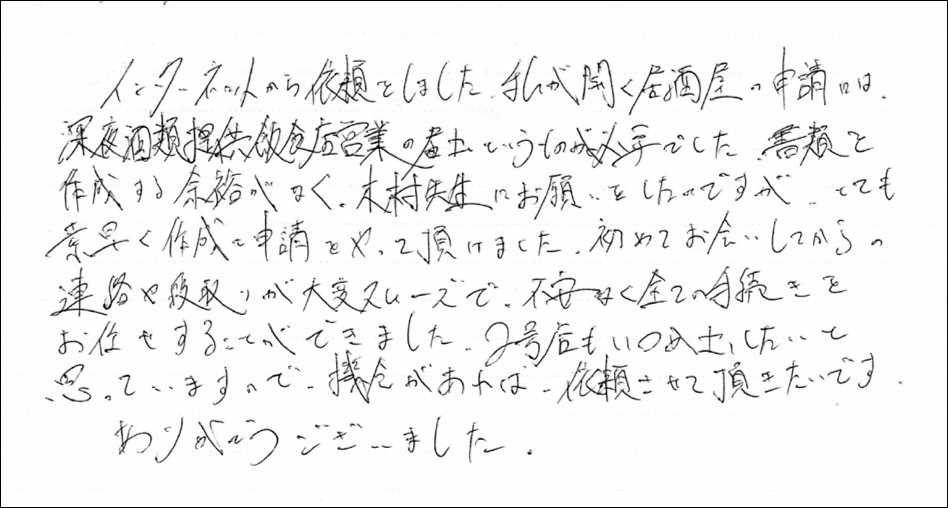 インターネットから依頼をしました。私が開く居酒屋の申請には、
深夜酒類提供飲食店営業の届出というものが必要でした。書類を
作成する余裕がなく、木村先生にお願いをしたのですが、とても
素早く作成や申請をやって頂けました。初めてお会いしてからの
連絡や段取りが大変スムーズで、不安なく全ての手続きを
お任せすることができました。2号店もいつか出したいと
思っていますので、機会があれば、依頼させて頂きたいです。
ありがとうございました。